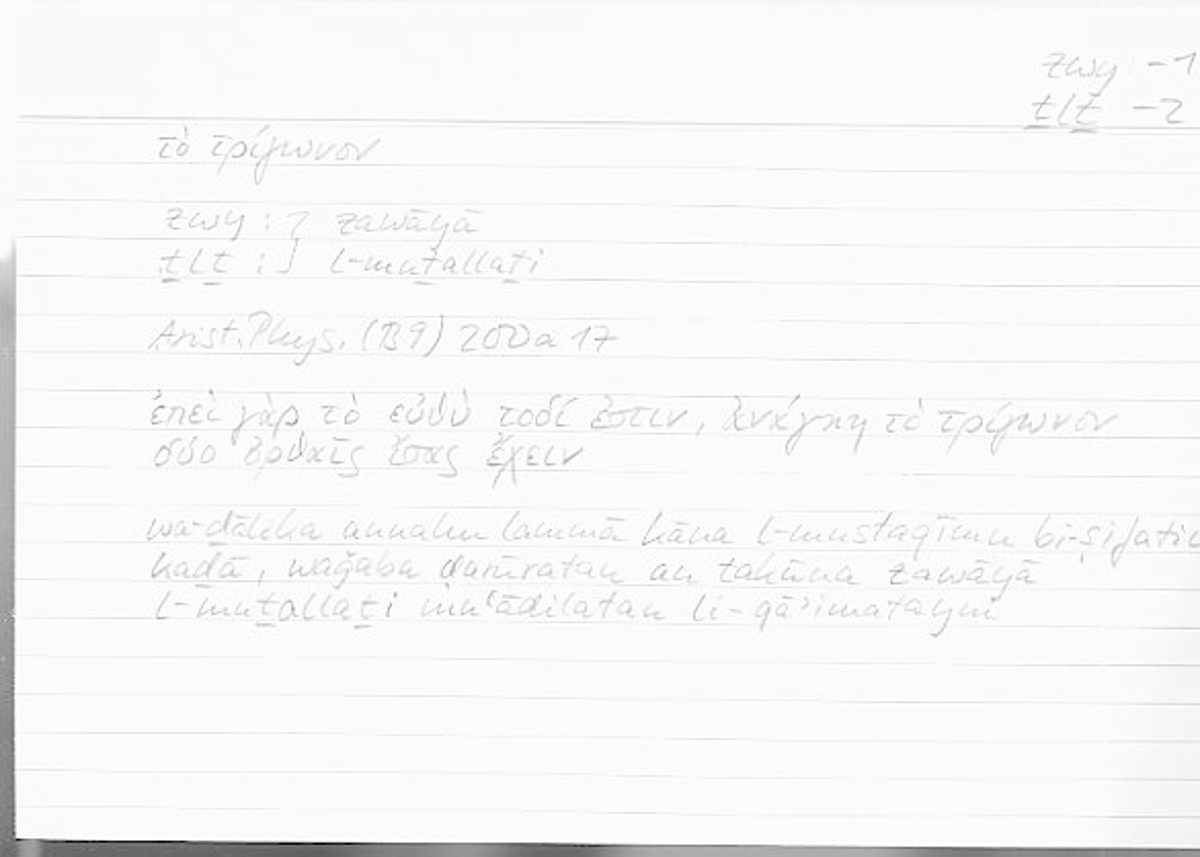 zwy -1
ṯlṯ -2
τὸ τρίγωνον
zwy : ? zawāyā
ṯlṯ : ] l-muṯallaṯi
Arist. Phys. (B9) 200a17
ἐπεὶ γὰρ τὸ εὐθὺ τοδί ἐστιν, ἀνάγκη τὸ τρίγωνον
δύο ὀρθαῖς ἴσας ἔχειν
wa-ḏālika annahu lammā kāna l-mustaqīmu bi-ṣifatin
kaḏā, waǧaba ḍarūratan an takūna zawāyā
l-muṯallaṯi muʿādilatan li-qāʾimatayni